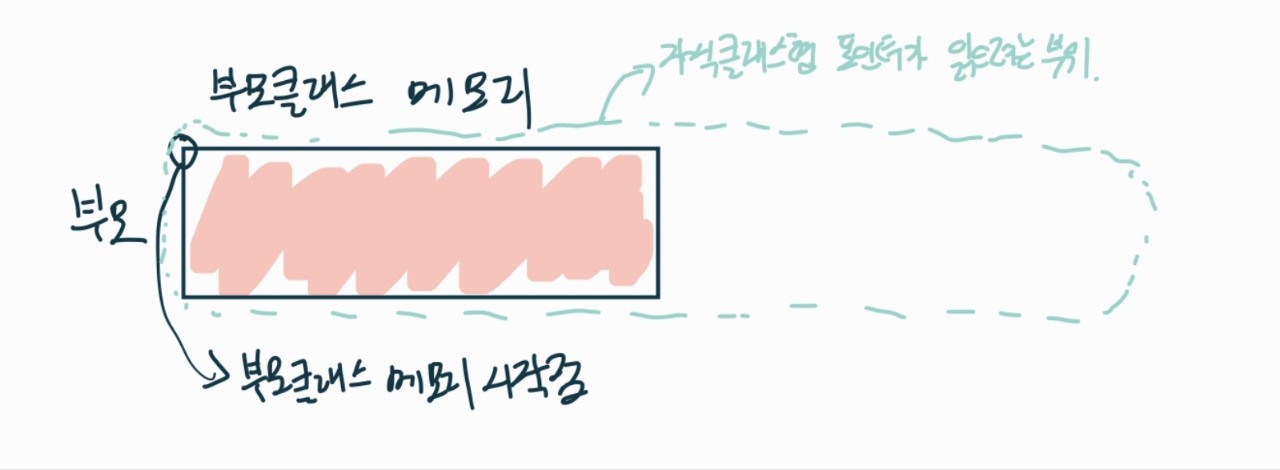 자식클래스형 포인터가 읽으려는 부위.
부모클래스 메모리
부모
부모클래스 메모리 시작점